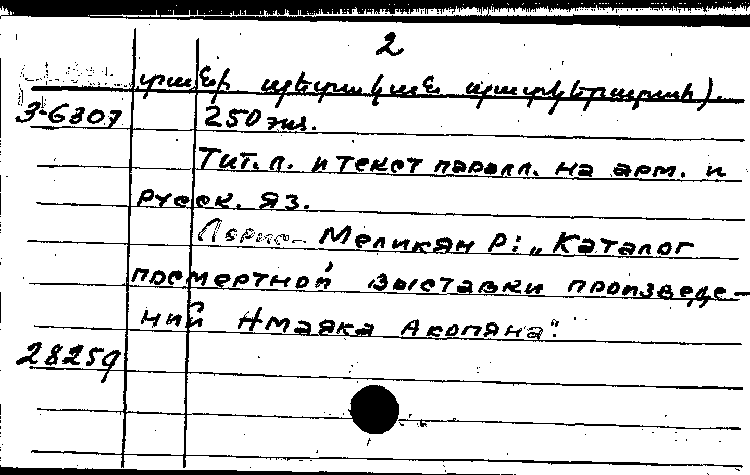 2
տանի պետական պատկերասրահ).
3-6307 250 экз.
Тит. л. и текст паралл. на арм. и
русск. яз.
Лорис- Меликян Р: „Каталог
посмертной выставки произведе-
ний Амаяка Акопяна".
28259